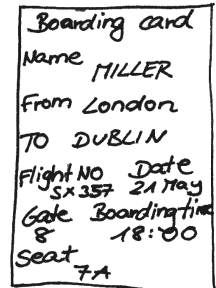 Boarding card
Name
MILLER
From London
TO DUBLIN
Flight NO Date
SX357 21 May
Gate Boardingtime
8 18:00
Seat
7A